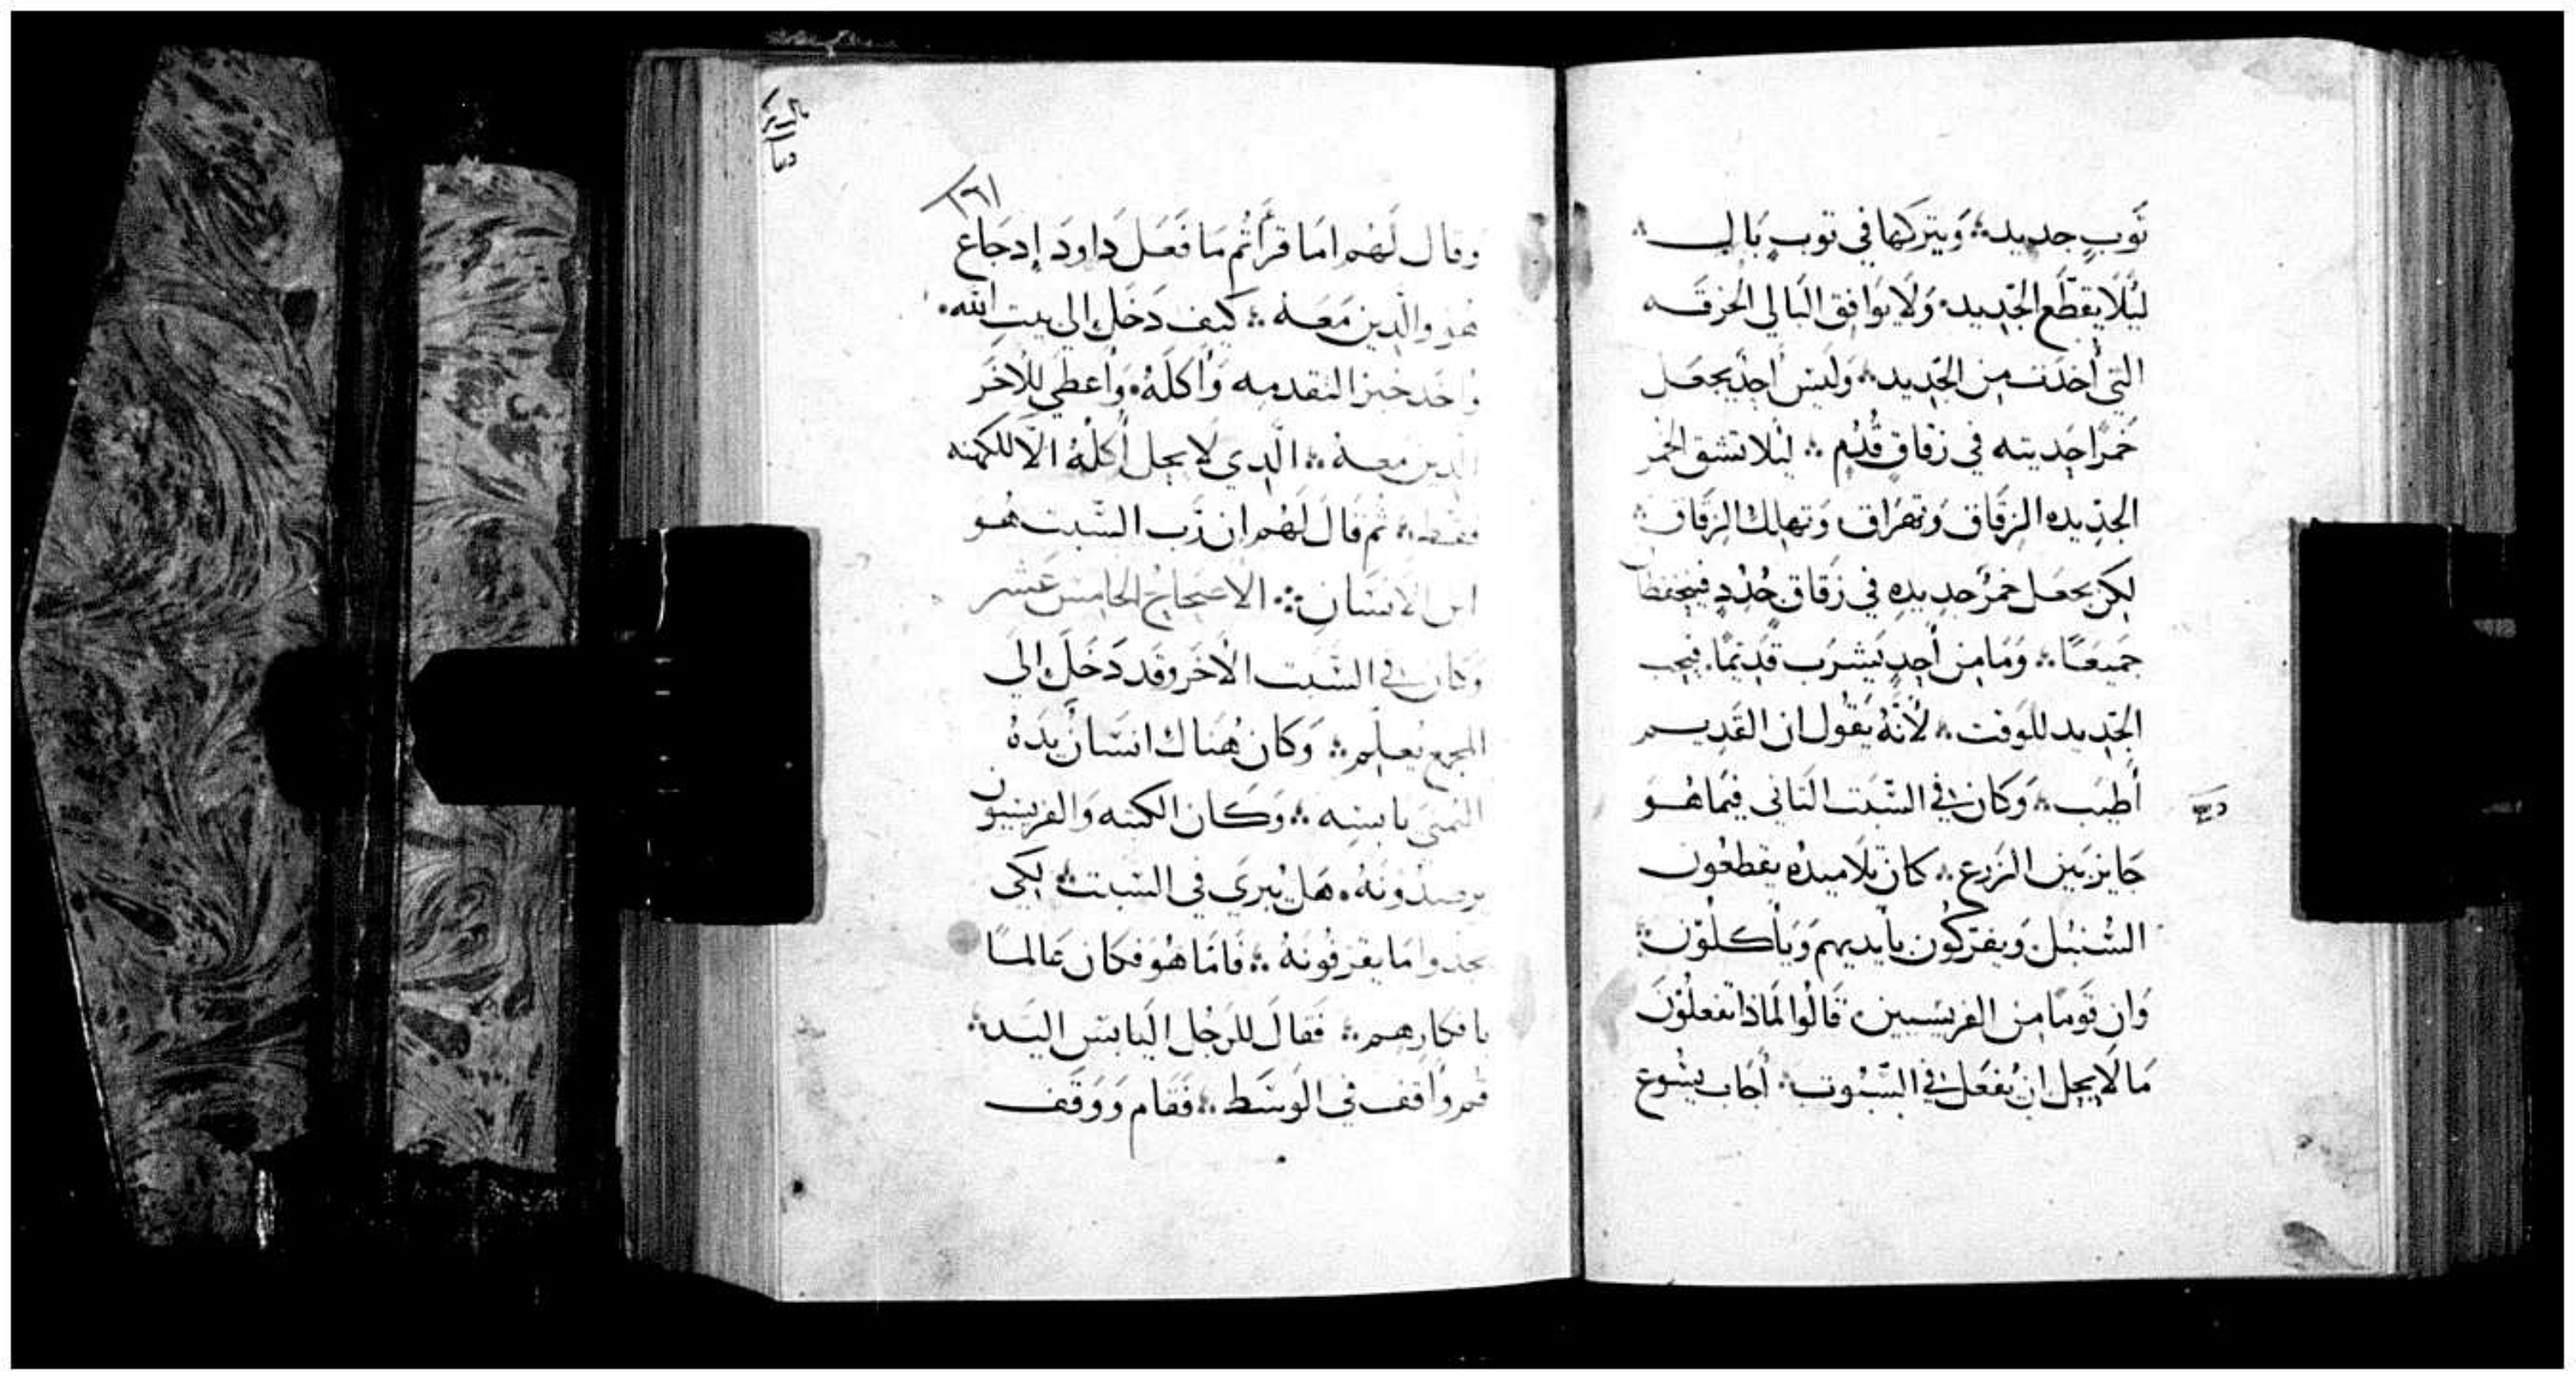 ثَوبٍ جديد؞ وَيتركها في توبٍ بَالٍ؞
ليَلا يقطّع الجّديد؞ وَلَا يوَافِق البَالي الخرقَه
التي أُخدَت مِن الجّديد؞ وَليسَ احِدٌ يجعَل
خَمرًا جَديته في زقاقٍ قُدُمٍ؞ ليَلا تشق الخمر
الجدِيده الزقاق وَتهرَاق وَتهلِك الزقاق؞
لكِن يجعَل خمرٌ جدِيدِه في زقاق جُدُدٍ فيتحفظا
جَميعًا؞ وَمَا مِن أَحِدٍ يَشرَب قَدِيمًا. فيُحِب
الجّديد للوَقت؞ لأَنَّهُ يَقُول ان القَديم
أَطيَب؞ وَكان في السَّبَت التاني فيمَا هُو
جَايز بَين الزَرع؞ كانَ تلَاميدُه يقطعُون
السُنبُل وَيفرَكُون بأيديهم وَيَأكلوُن؞
وَان قومًا مِن الفريسيين؞ قَالُوا لمَاذا تفعلُونَ
مَا لَا يحِل ان يُفعَل في السّبُوت؞ أَجَاب يسُوع
١٢٦
وقال لَهُم امَا قرَأتُم مَا فَعَل دَاودَ إِد جَاع
هو والّدين مَعَه؞ كيَف دَخَل إلى بيت الله.
وَاخَد خبز التقدمه وَأَكلَهُ. وَأَعطي للآخَر
الدين معه؞ الّدي لَا يحِل أَكلُهُ الَّا للكهنه
فقط؞ ثم قالَ لَهُم ان رَب السّبت هُو
ابن الاِنسَان؞ الاصحَاحُ الخامِس عَشر
وَكان في السَّبت الآخَر وقد دَخَلَ إلي
المجمع يُعلِم؞ وَكان هُنَاك انسَانٌ يَدَهُ
اليُمنَى يابسَه؞ وَكان الكتبه وَالفريسيون
يرصدُونَهُ. هَل يُبرَي في السَبت؞ لِكَي
يجدوا مَا يقرَفُونَهُ؞ فَامَّا هُوَ فَكان عَالمًا
بافكارهم؞ فَقالَ للرَجُل اليَابسَ اليَد؞
قُم وَأقف في الوَسَط؞ فَقَام وَوَقَف